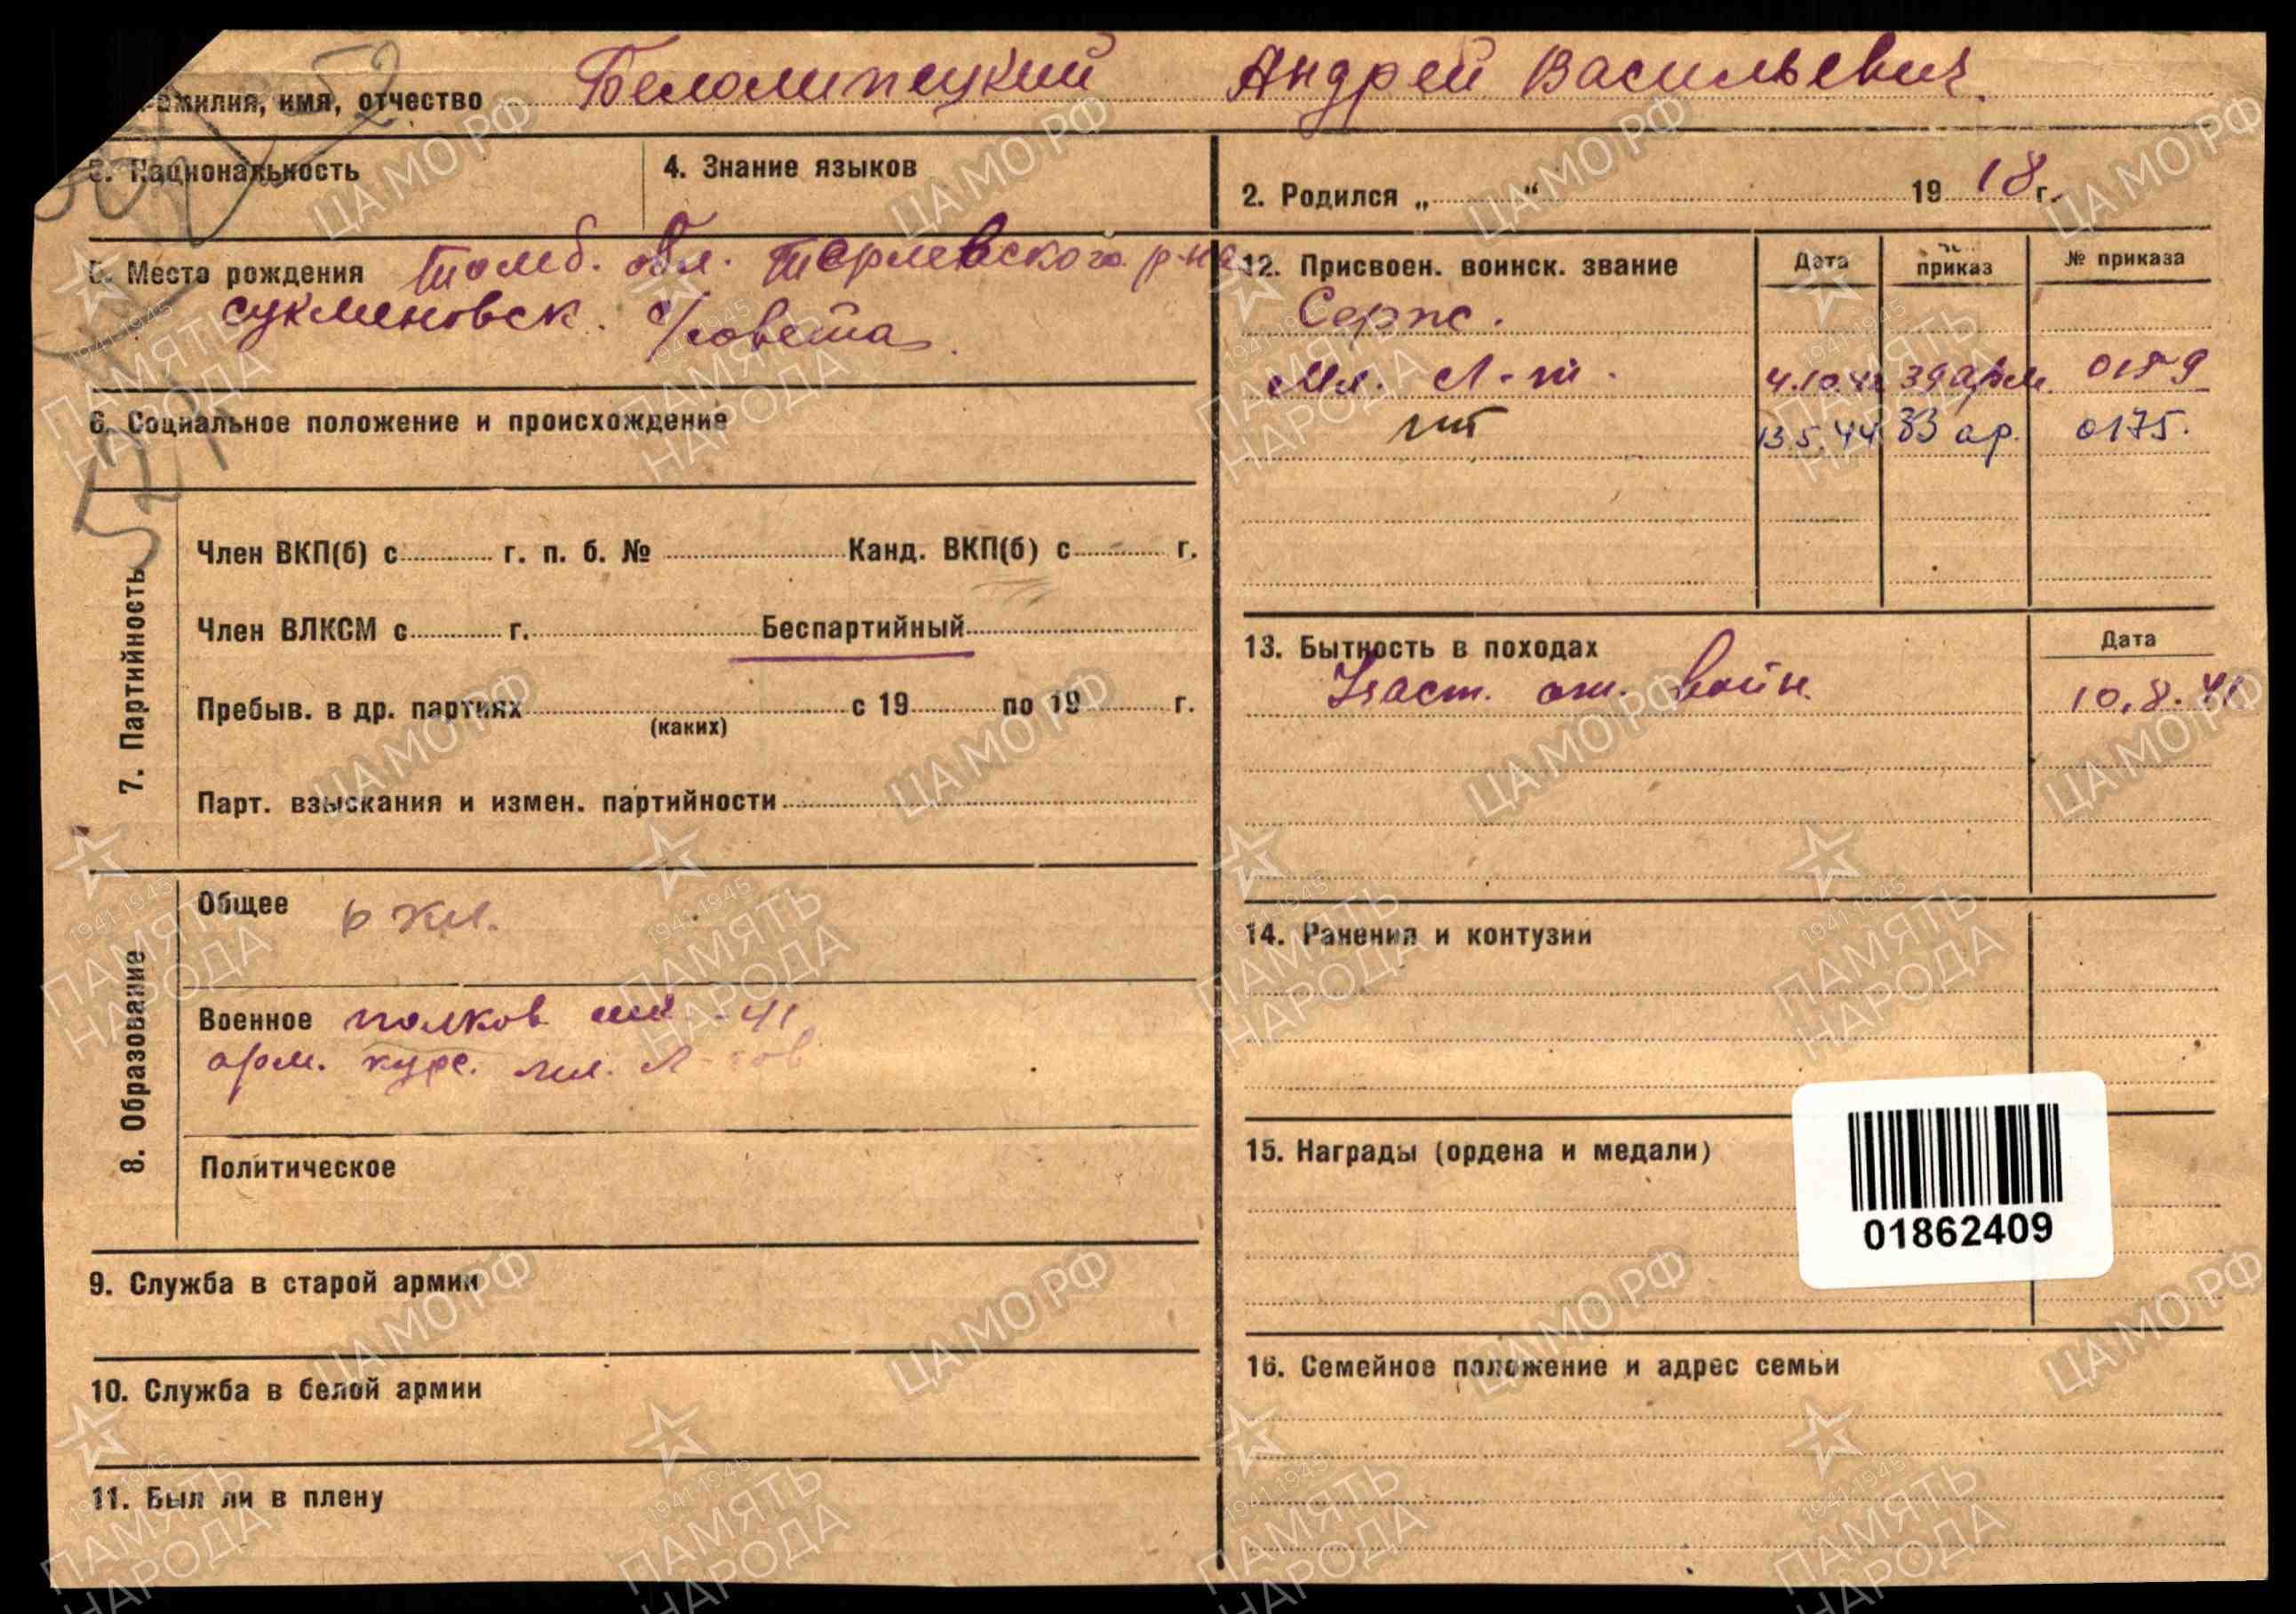 Фамилия, имя, отчество Белолипецкий Андрей Васильевич.
52
3. Национальность
4. Знание языков
2. Родился „ “ 1918 г.
5. Место рождения Тамб. обл. Терлевского р-на
сукмановск. с/совета.
6. Социальное положение и происхождение
7. Партийность
Член ВКП(б) с г. п. б. № Канд. ВКП(б) с г.
Член ВЛКСМ с г. Беспартийный
Пребыв. в др. партиях с 19 по 19 г.
(каких)
Парт. взыскания и измен. партийности
8. Образование
Общее 6 кл.
Военное полков шк - 41
арм. курс. мл. л-тов
Политическое
9. Служба в старой армии
10. Служба в белой армии
11. Был ли в плену
12. Присвоен. воинск. звание Дата приказ № приказа
Серж.
Мл. Л-т. 4.10.42 39 арм. 0159
лт 13.5.44 33 ар. 0175.
13. Бытность в походах Дата
Участ. от. войн. 10.8.41
14. Ранения и контузии
15. Награды (ордена и медали)
01862409
16. Семейное положение и адрес семьи
ЦАМО РФ
1941-1945
ПАМЯТЬ
НАРОДА